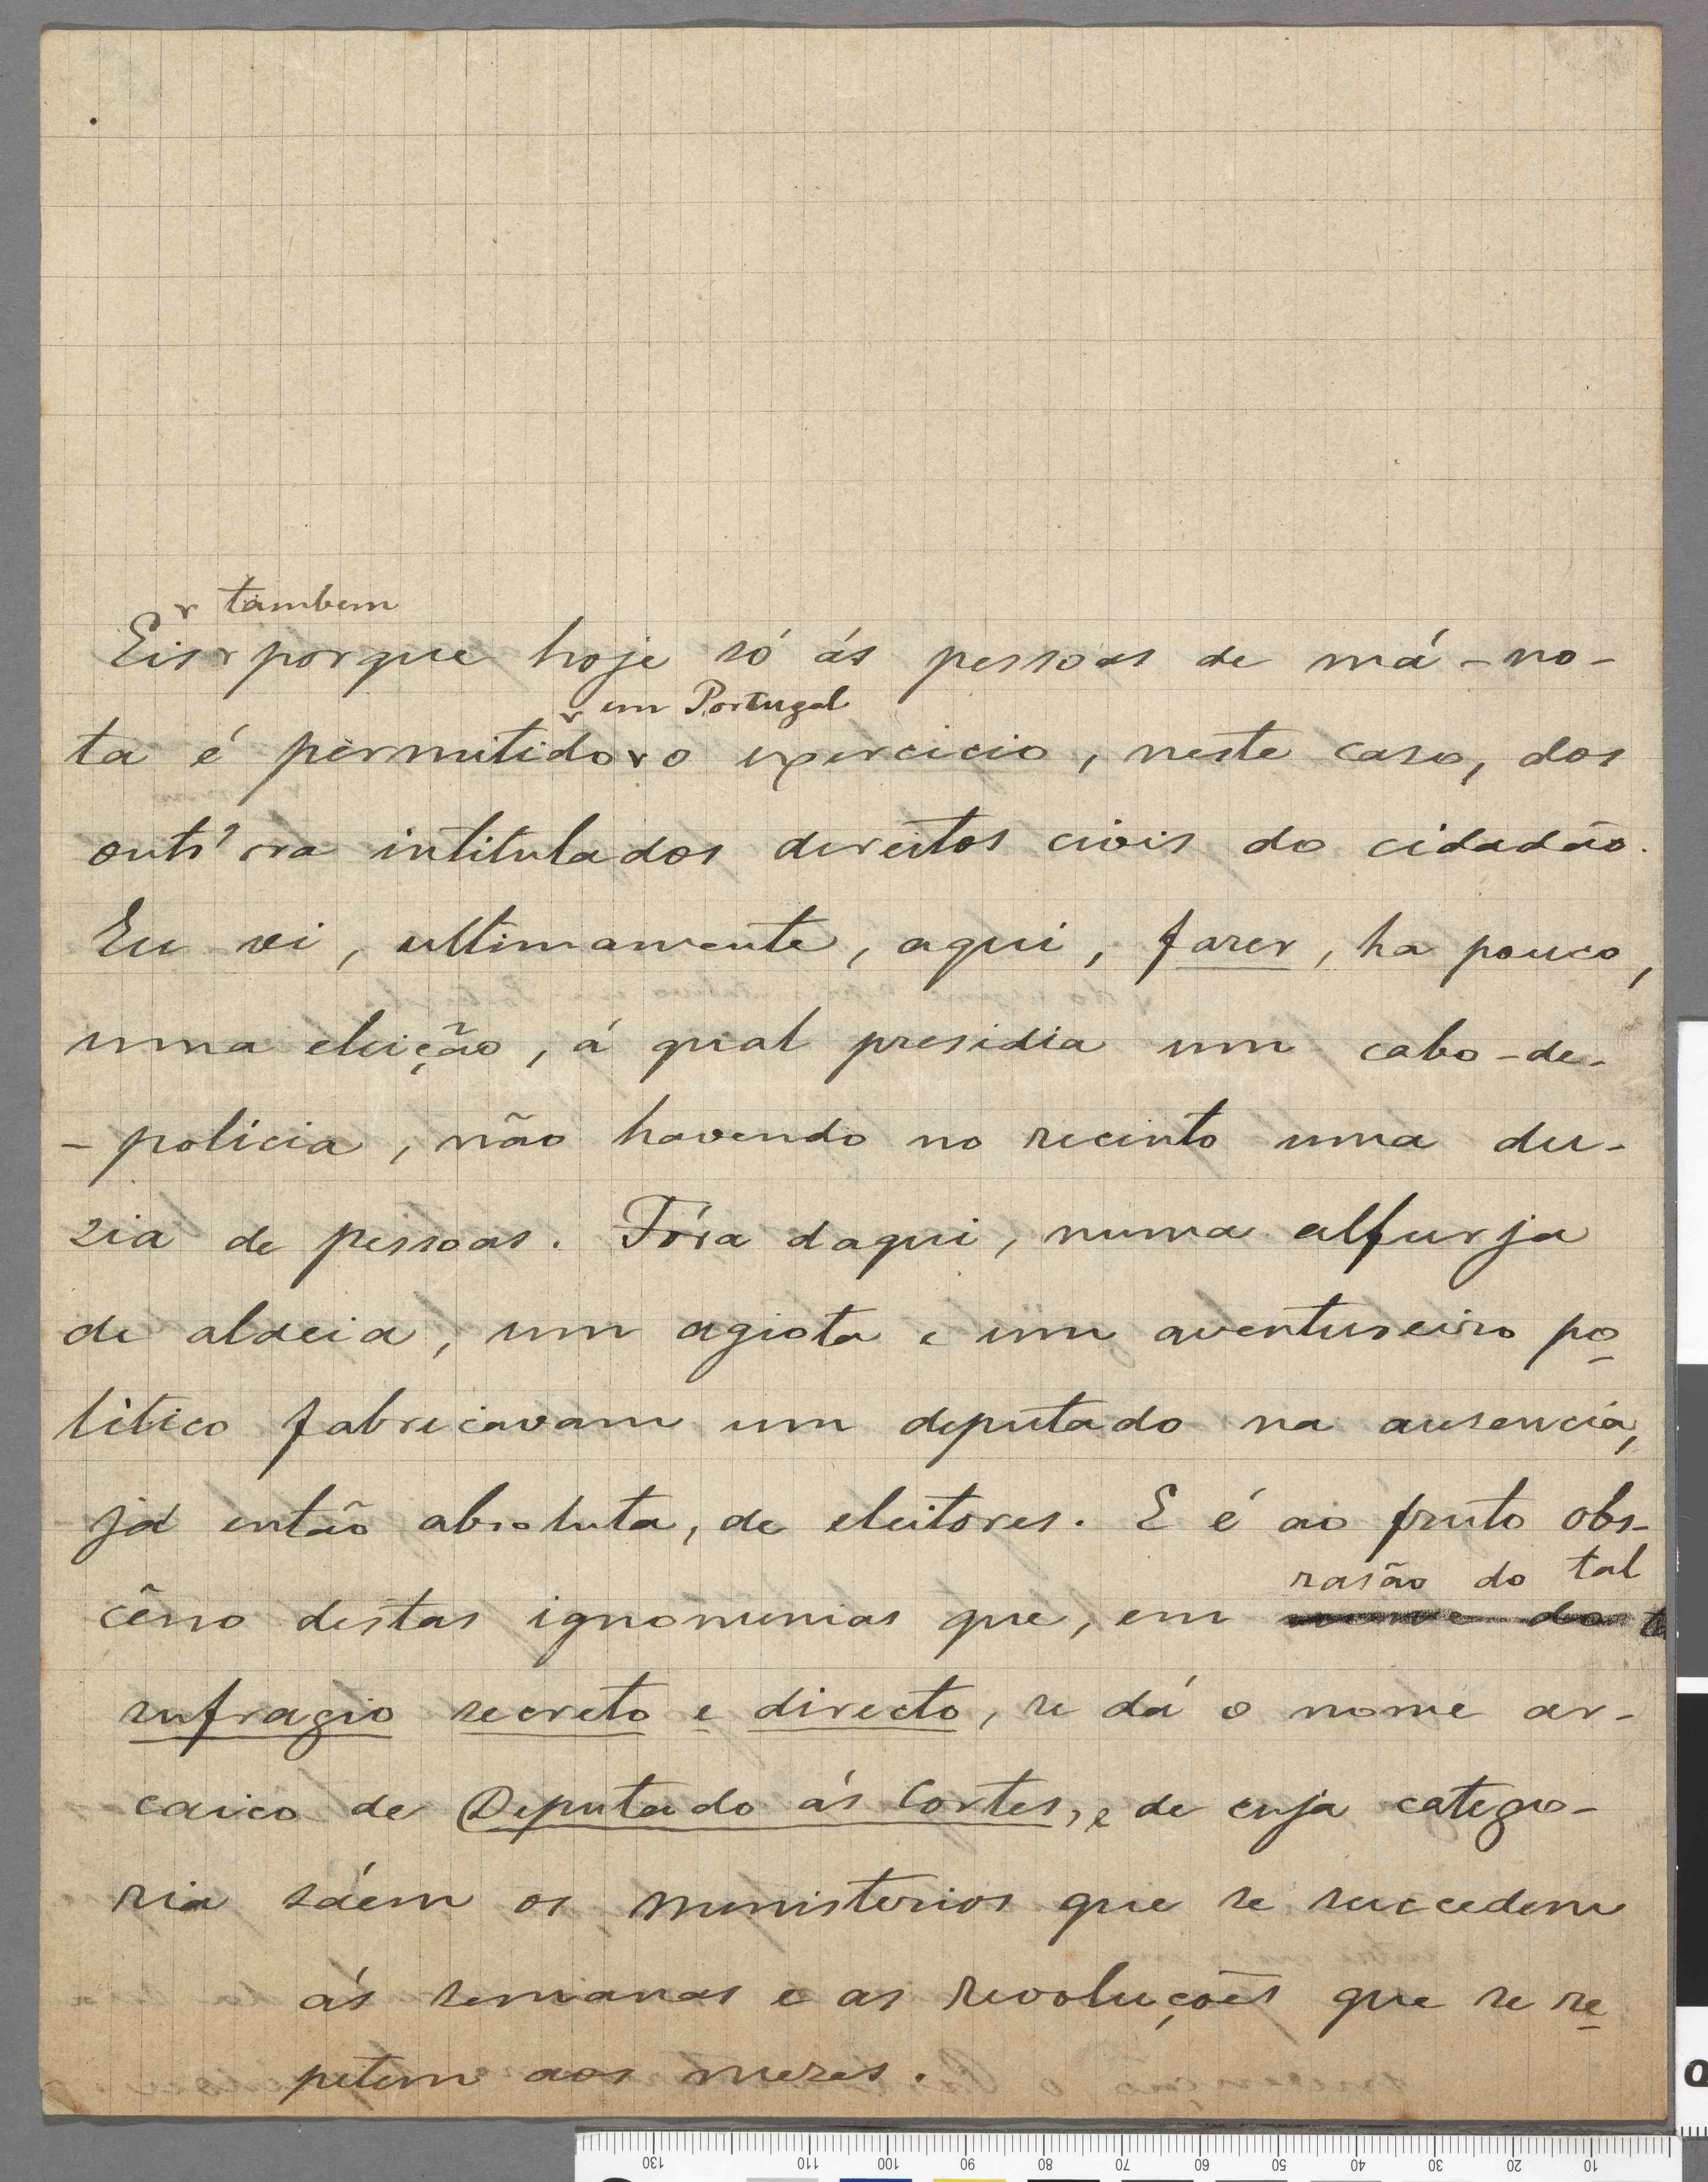 também
Eis porque hoje só ás pessoas de má-no-
em Portugal
ta é permitido o exercicio, neste caso, dos
outr'ora intitulados direitos civis do cidadão.
Eu vi, ultimamente, aqui, fazer, ha pouco,
uma eleição, á qual presidia um cabo-de-
-policia, não havendo no recinto uma du-
zia de pessoas. Fóra daqui, numa alfurja
de aldeia, um agiota e um aventureiro po
litico fabricavam um deputado na ausencia,
já então absoluta, de eleitores. E é ao fruto obs-
rasão do tal
cêno destas ignominias que, em nome do
sufragio secreto e directo, se dá o nome ar-
caico de Deputado ás Cortes, e de cuja catego-
ria sáem os ministerios que se succedem
ás semanas e as revoluções que se re
petem aos mezes.
130 110 100 90 80 70 60 50 40 30 20 10